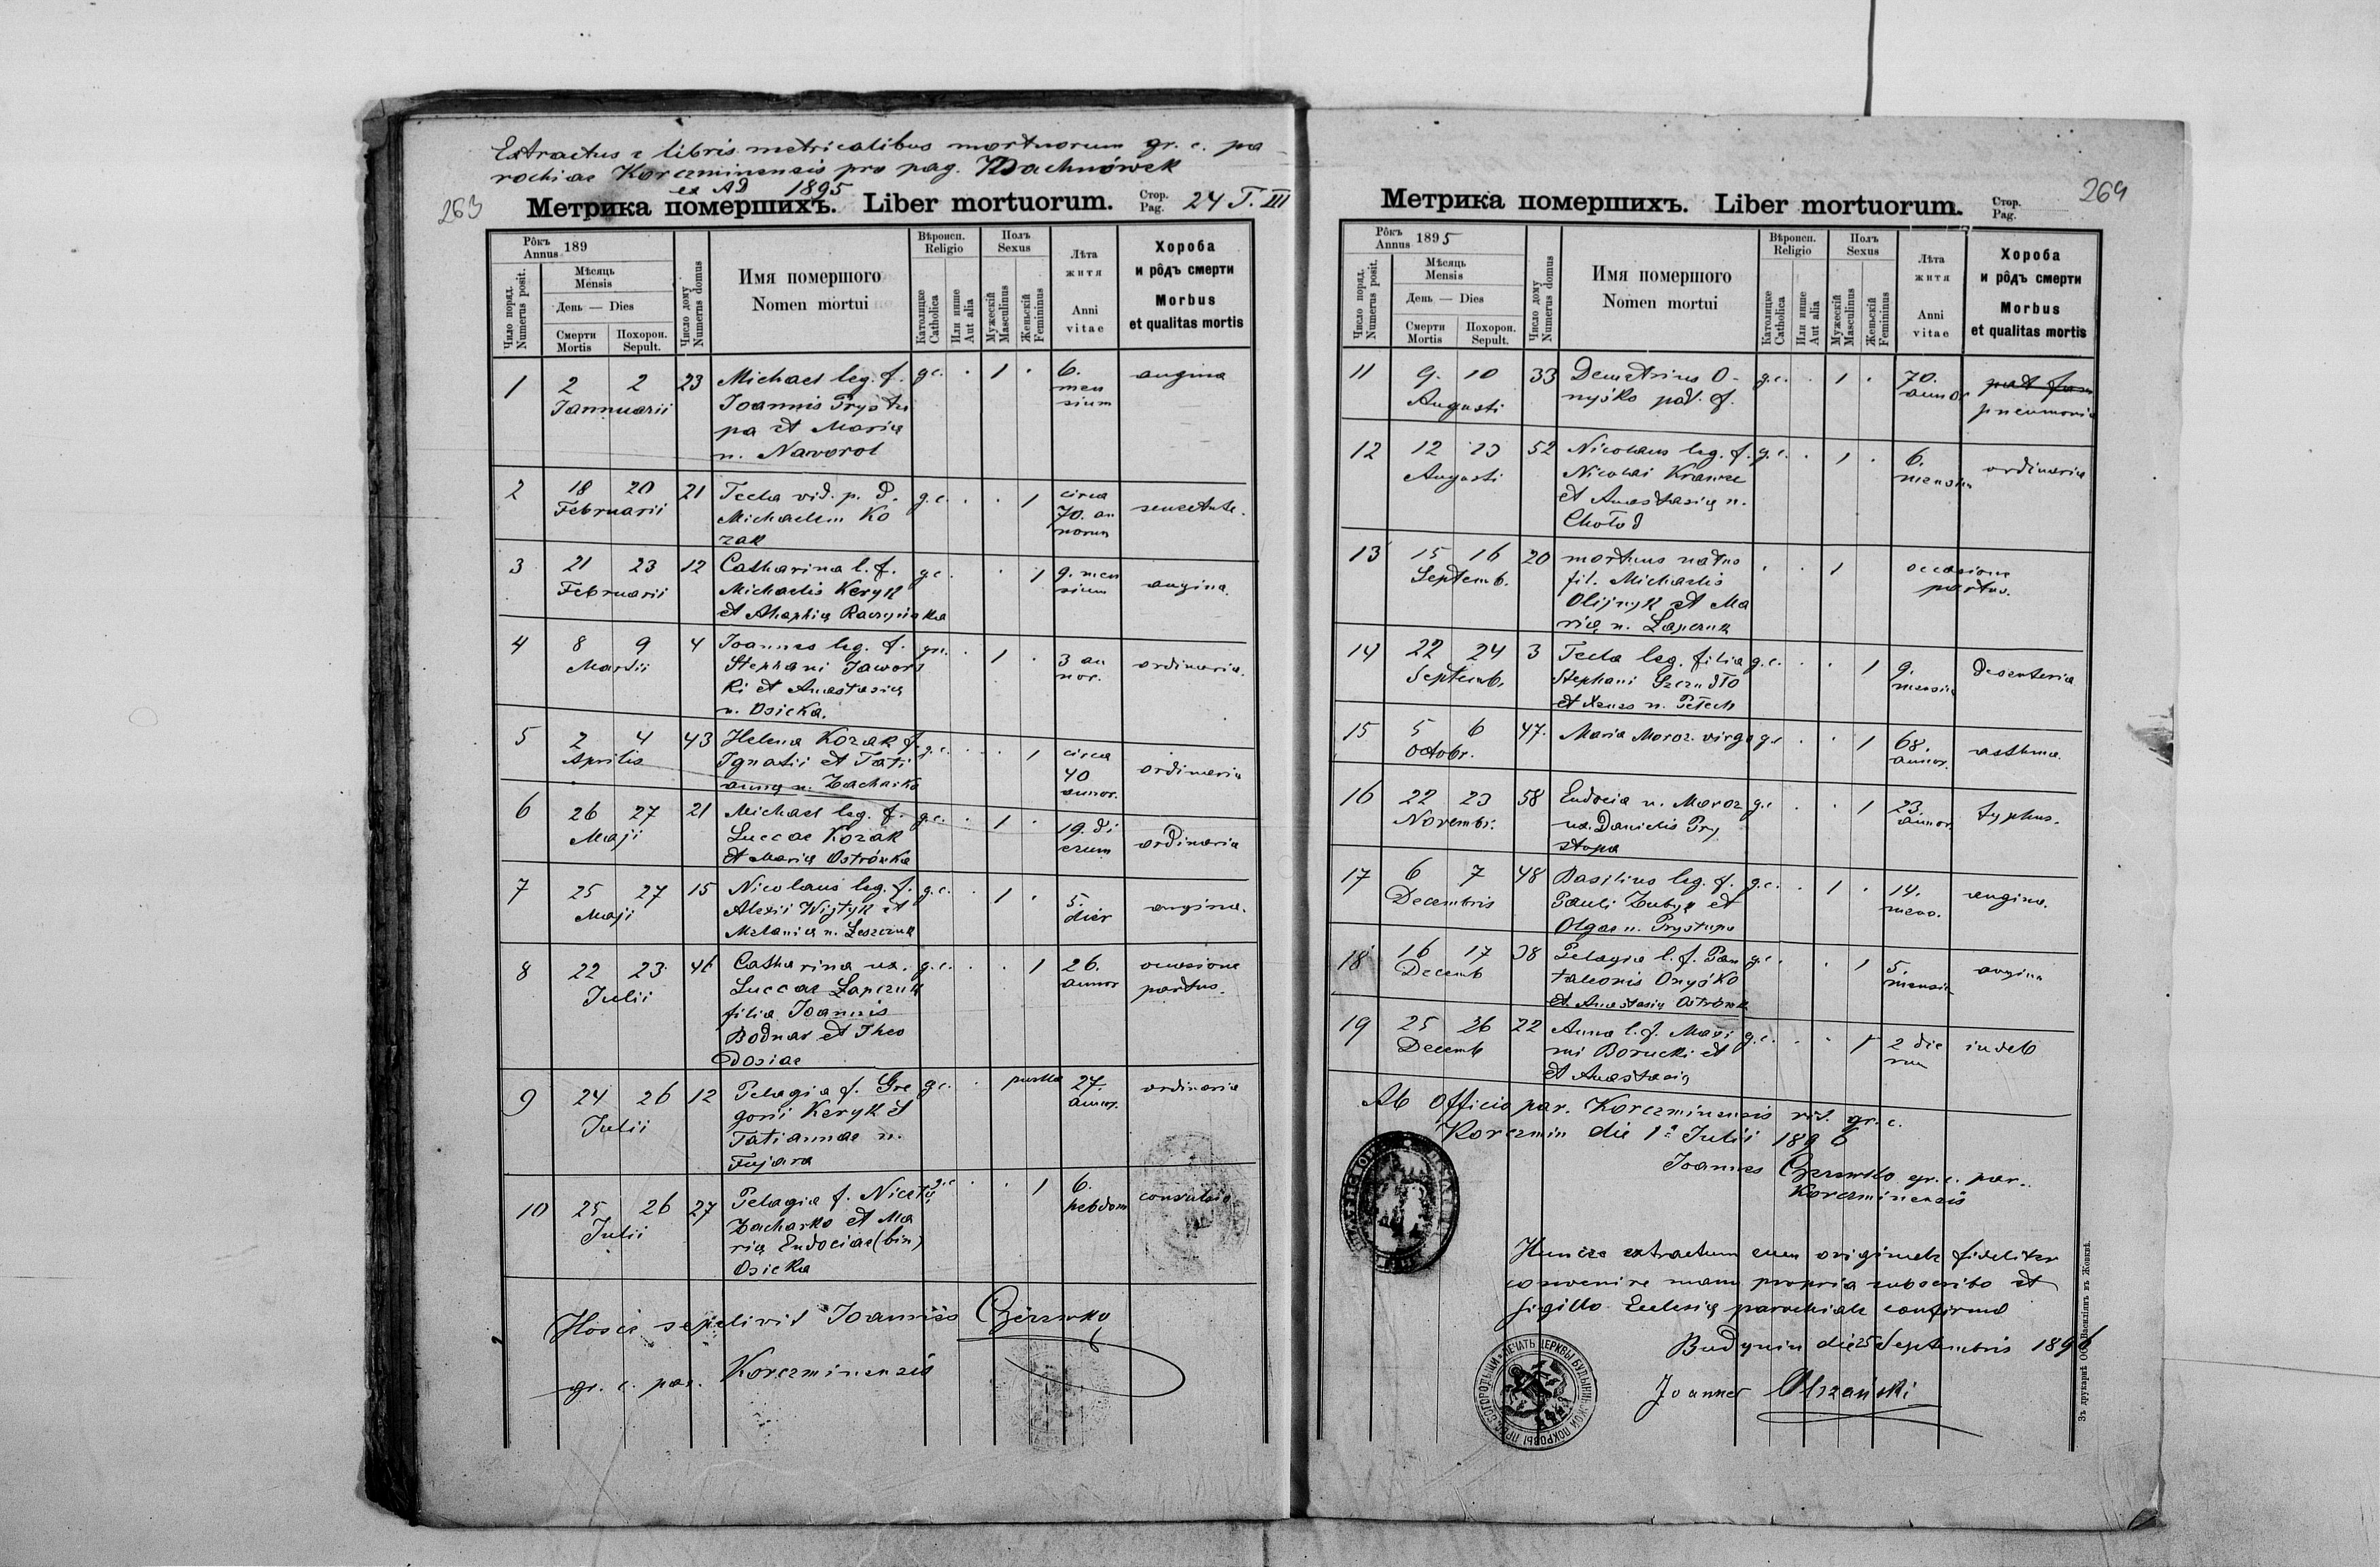 Extractus e libris metricalibus mortuorum gr. c. pa-
rochiae Korczminensis pro pag. Wachnówek
ex AD 1895
263
Метрика померших. Liber mortuorum. Стор. Pag. 24 T. III
Рôкъ Annus 189
Число поряд. Numerus posit.
Мѣсяць Mensis
День — Dies
Смерти Mortis
Похорон. Sepult.
Число дому Numerus domus
Имя помершого
Nomen mortui
Вѣроисп. Religio
Католицке Catholica
Или инше Aut alia
Полъ Sexus
Мужескій Masculinus
Женьскій Femininus
Лѣта житя
Anni vitae
Хороба и рôдъ смерти
Morbus et qualitas mortis
1 2 2 23 Michael leg. f. g.c. · 1 · 6. angina
Jannuarii Joannis Prystu men
pa et Maria sium
n. Naworol
2 18 20 21 Tecla vid. p. d. g.c. · · 1 circa
Februarii Michaelem Ko 70. an senectute.
zak norum
3 21 23 12 Catharina l. f. g.c. · 1 9. men angina.
Februarii Michaelis Keryk sium
et Ahaphia
4 8 9 4 Joannes leg. f. gr. · 1 · 3 an ordinaria.
Martii Stephani Jawors nor.
ki et Anastasia
n. Osicka.
5 2 4 43 Helena Kozak f. g.c. · · 1 circa
Aprilis Ignatii et Tati 40 ordinaria
anna n. Zacharko annor.
6 26 27 21 Michael leg. f. g.c. · 1 · 19. di
Maji Luccae Kozak erum ordinaria
et Maria Ostrówka
7 25 27 15 Nicolaus leg. f. g.c. · 1 · 5. angina.
Maji Alexii Wijtyk et dier
Melania n. Leszczuk
8 22 23 46 Catharina ux. g.c. · · 1 26. occasione
Julii Luccae Łapczuk annor partus.
filia Joannis
Bodnar et Theo
dosiae
9 24 26 12 Pelagia f. Gre g.c. · puella 27. ordinaria
Julii gorii Keryk et annor.
Tatiannae n.
Fujara
10 25 26 27 Pelagia f. Nicetę g.c. · · 1 6.
Julii Zacharko et Ma hebdom
ria Eudociae (bin)
Osicka
Hosce sepelivit Joannes Czerewko
gr. c. par. Korczminensis
264
Метрика померших. Liber mortuorum. Стор. Pag.
Рôкъ Annus 1895
Число поряд. Numerus posit.
Мѣсяць Mensis
День — Dies
Смерти Mortis
Похорон. Sepult.
Число дому Numerus domus
Имя помершого
Nomen mortui
Вѣроисп. Religio
Католицке Catholica
Или инше Aut alia
Полъ Sexus
Мужескій Masculinus
Женьскій Femininus
Лѣта житя
Anni vitae
Хороба и рôдъ смерти
Morbus et qualitas mortis
11 9. 10 33 Demetrius O- g.c. · 1 · 70.
Augusti nyśko pat. f. annor pneumonia
12 12 13 52 Nicolaus leg. f. g.c. · 1 · 6. ordinaria
Augusti Nicolai Krawce mensiu
et Anastasia n.
Chołod
13 15 16 20 mortuus natus · · 1 occasione
Septemb. fil. Michaelis partus.
Olijnyk et Ma
ria n. Łapczuk
14 22 24 3 Tecla leg. filia g.c. · · 1 9. desenteria
Septemb. Stephani mensiu
15 5 6 47. Maria Moroz. virgo g.c · · 1 68. asthma.
Octobr. annor.
16 22 23 58 Eudocia n. Moroz g.c · · 1 23. typhus.
Novembr. ux. Danielis Pry annor.
stupa
17 6 7 48 Basilius leg. f. g.c. · 1 · 14. angina.
Decembris Pauli Zubyk et mens.
Olgae n. Prystupa
18 16 17 38 Pelagia l. f. Pan g.c. · 1 5. angina
Decemb taleonis Onyśko mensiu
et Anastasia Ostrówka
19 25 26 22 Anna l. f. Maxi g.c. · · 1 2 die indeb
Decemb mi Borucki et rum
et Anastasia
Ab Officio par. Korczminensis rit. gr. c.
Korczmin die 1ª Julii 1896
Joannes Czerewko gr. c. par.
Korczminensis
Huncce extractum cum originale fideliter
convenire manu propria subscribo et
sigillo Ecclesia parochiale confirmo
Budynin die 25 Septembris 1896
Joannes Olszański
ПЕЧАТЬ ЦЕРКВЫ БУДЫНИНЬСКОИ ПОКРОВЫ ПРЕС. БОГОРОДИЦЫ
Зъ друкарнѣ ОО. Василіянъ въ Жовквѣ.